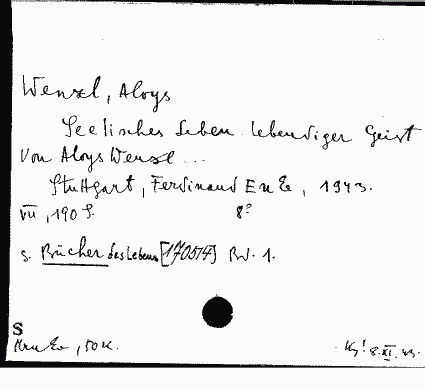 Wenzl, Aloys
Seelisches Leben lebendiger Geist
von Aloys Wenzl...
Stuttgart, Ferdinand Enke, 1943.
VII, 190 S. 8°
s. Bücher des Lebens [170514] Bd. 1.
S
, 50 K. 8.XI.43.